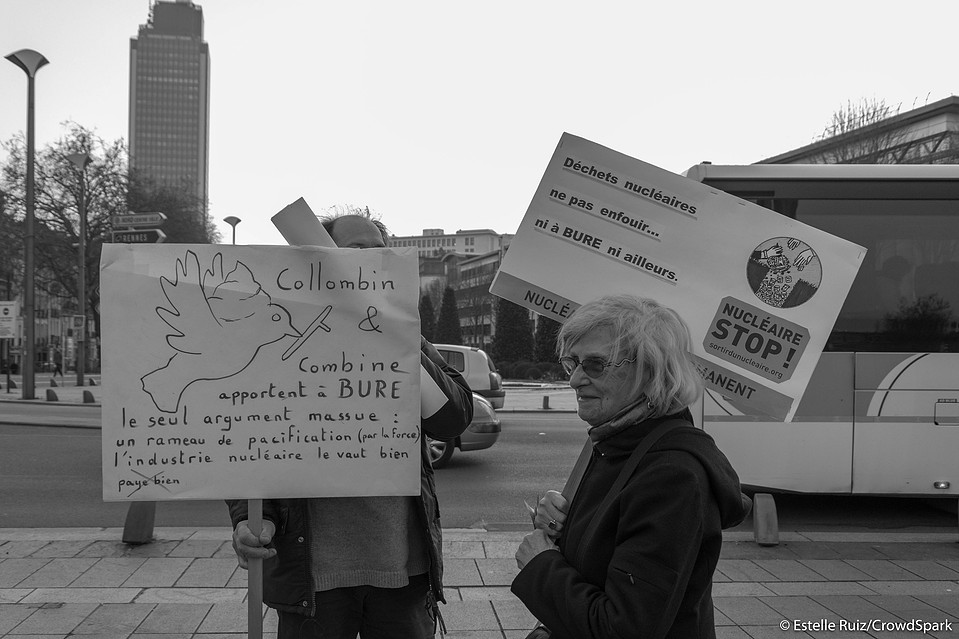 RENNES
Collombin
&
Combine
apportent à BURE
le seul argument massue :
un rameau de pacification (par la force)
l'industrie nucléaire le vaut bien
paye bien
Déchets nucléaires
ne pas enfouir...
ni à BURE ni ailleurs.
NUCLÉAIRE
STOP !
sortirdunucleaire.org
NUCLÉ
MANENT
© Estelle Ruiz/CrowdSpark